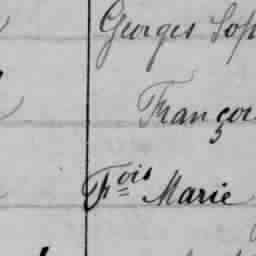 Georges Sop
Françoi
Fois Marie